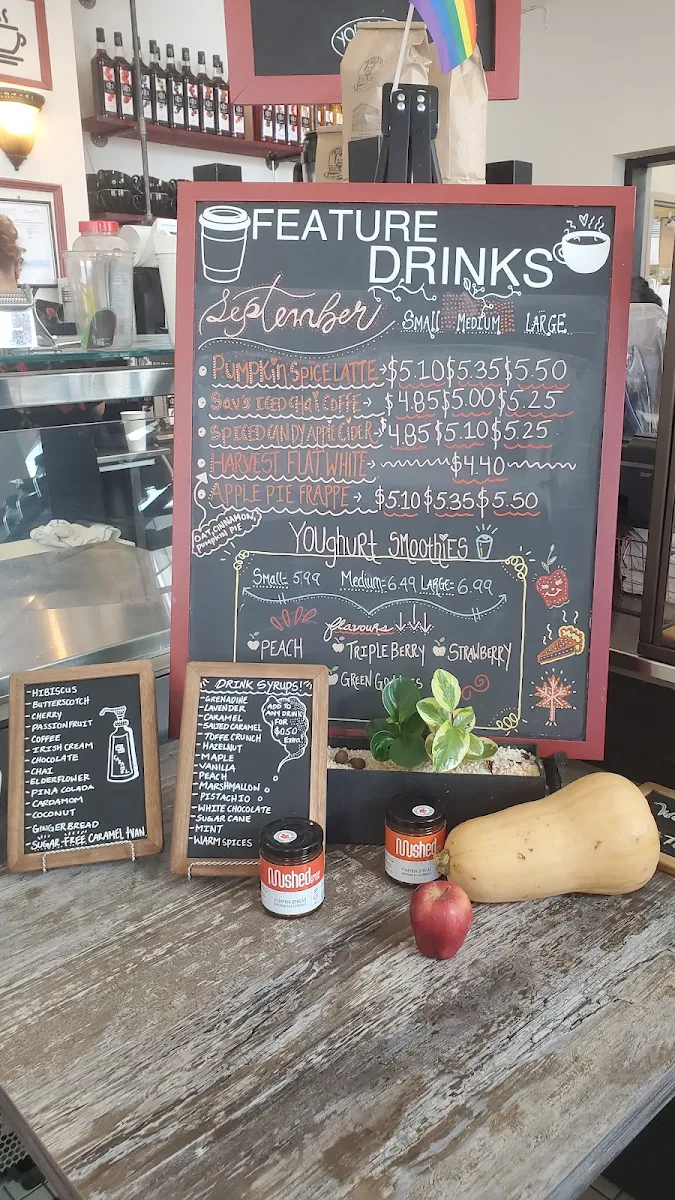 YO
FEATURE
DRINKS
September SMALL MEDIUM LARGE
PUMPKIN SPICE LATTE $5.10 $5.35 $5.50
SAV'S ICED CHAI COFFE $4.85 $5.00 $5.25
SPICED CANDY APPLE CIDER $4.85 $5.10 $5.25
HARVEST FLAT WHITE $4.40
APPLE PIE FRAPPE $5.10 $5.35 $5.50
OAT, CINNAMON,
PUMPKIN PIE
YOUghurt Smoothies
Small= 5.99 Medium= 6.49 LARGE= 6.99
flavours
PEACH TRIPLE BERRY STRAWBERRY
GREEN
- HIBISCUS
BUTTERSCOTCH
- CHERRY
- PASSIONFRUIT
- COFFEE
- IRISH CREAM
- CHOCOLATE
- CHAI
- ELDERFLOWER
- PINA COLADA
- CARDAMOM
- COCONUT
- GINGERBREAD
SUGAR FREE CARAMEL + VAN
- DRINK SYRUPS!
- GRENADINE
- LAVENDER
- CARAMEL
- SALTED CARAMEL
- TOFFE CRUNCH
- HAZELNUT
- MAPLE
- VANILLA
- PEACH
- MARSHMALLOW
- PISTACHIO
- WHITE CHOCOLATE
- SUGAR CANE
- MINT
- WARM SPICES
ADD TO
ANY DRINK
FOR
$0.50
EXTRA!
Mushed
PUMPKIN SPREAD
Mushed
PUMPKIN SPREAD